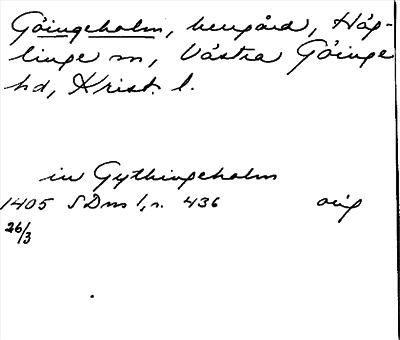 Göingeholm, herrgård, Häg-
linge sn, Västra Göinge
hd, Krist. l.
in Gythingeholm
1405 SDns 1, n. 436 orig
26/3